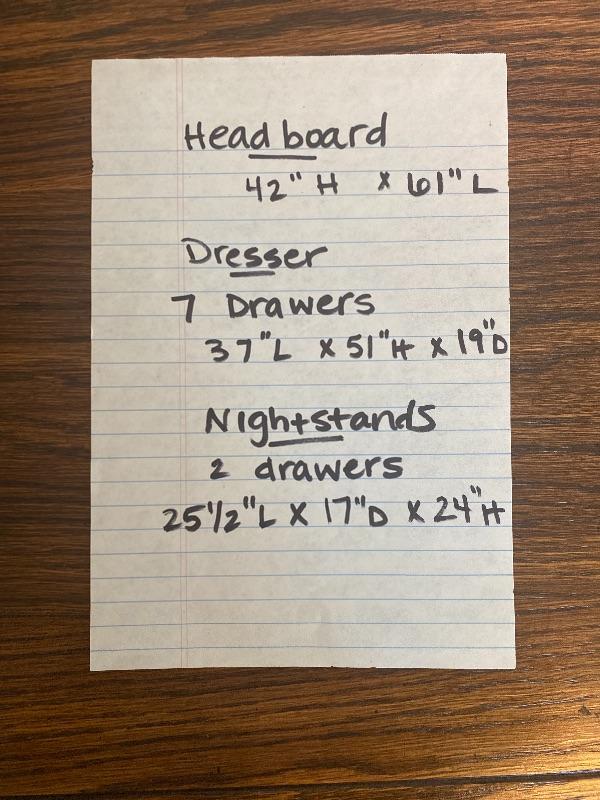 Headboard
42" H x 61" L
Dresser
7 Drawers
37"L x 51"H x 19"D
Nightstands
2 drawers
25 1/2"L x 17"D x 24"H